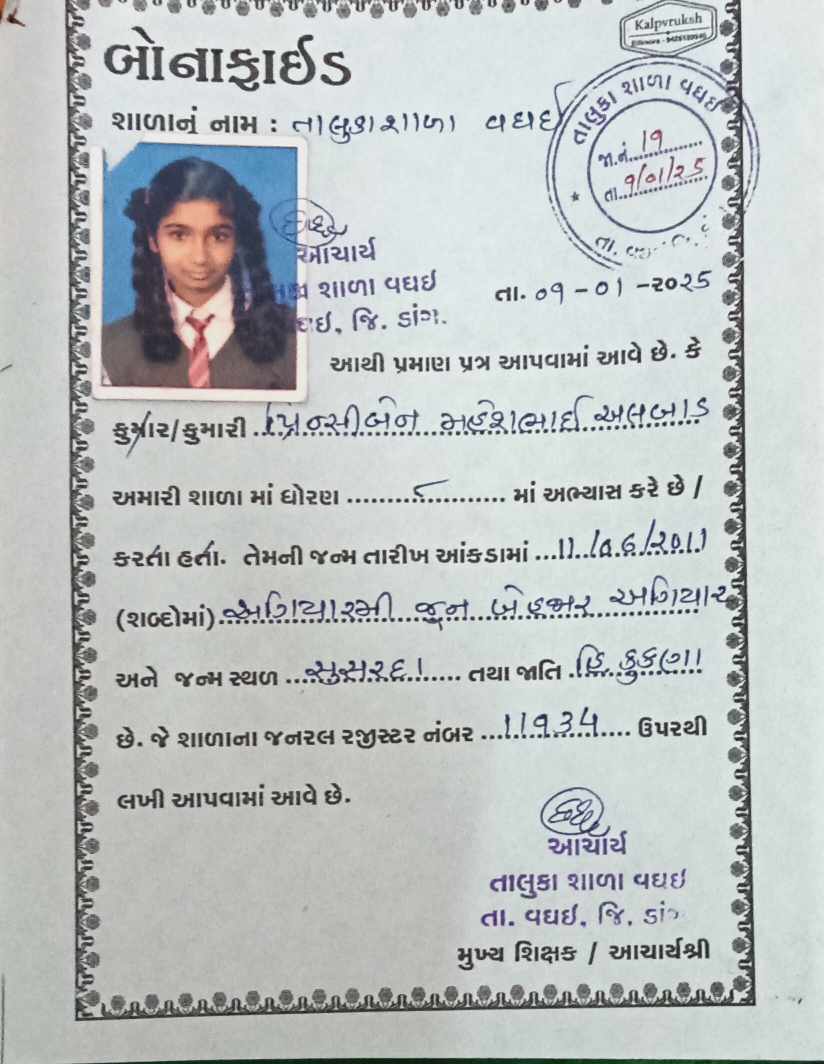 Kalpvruksh
બોનાફાઈડ
શાળાનું નામ : તાલુકા શાળા વઘઈ
તાલુકા શાળા વઘઈ
જા.નં. 19
તા. 9/01/25
આચાર્ય
શાળા વઘઈ
જિ. ડાંગ.
તા. ૦૧ - ૦૧ - ૨૦૨૫
આથી પ્રમાણ પત્ર આપવામાં આવે છે. કે
કુમાર/કુમારી પ્રિન્સીબેન મહેશભાઈ અલબાડ
અમારી શાળા માં ધોરણ ૮ માં અભ્યાસ કરે છે /
કરતા હતા. તેમની જન્મ તારીખ આંકડામાં 11/૦૬/૨૦૧૧
(શબ્દોમાં) અગિયારમી જૂન બે હજાર અગિયાર
અને જન્મ સ્થળ સુસરદા તથા જાતિ હિ. કુકણા
છે. જે શાળાના જનરલ રજીસ્ટર નંબર ૧૧૧૩૪ ઉપરથી
લખી આપવામાં આવે છે.
આચાર્ય
તાલુકા શાળા વઘઈ
તા. વઘઈ, જિ. ડાંગ
મુખ્ય શિક્ષક / આચાર્યશ્રી